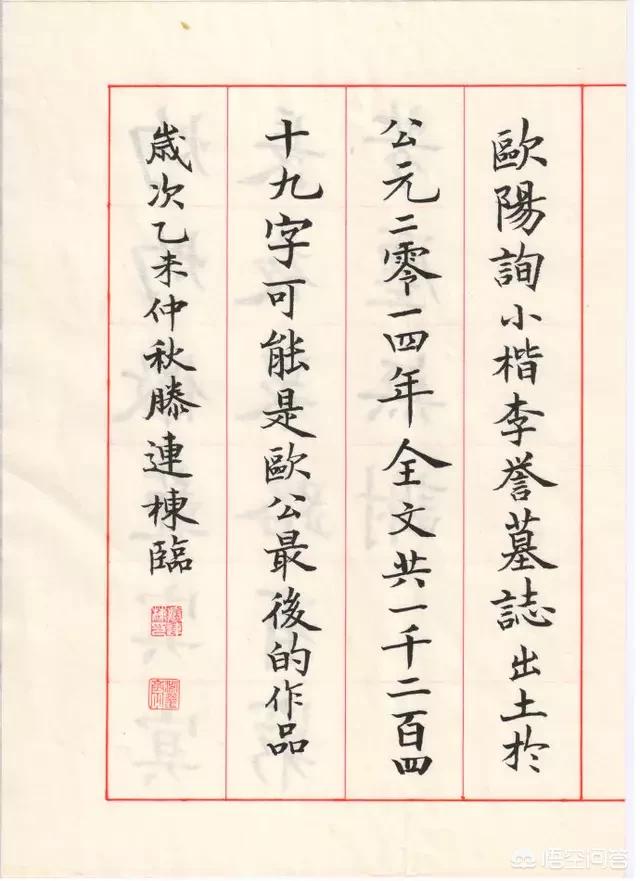 歐陽詢小楷李誉墓誌出土於
公元二零一四年全文共一千二百四
十九字可能是歐公最後的作品
歲次乙未仲秋滕連棟臨
悟空问答